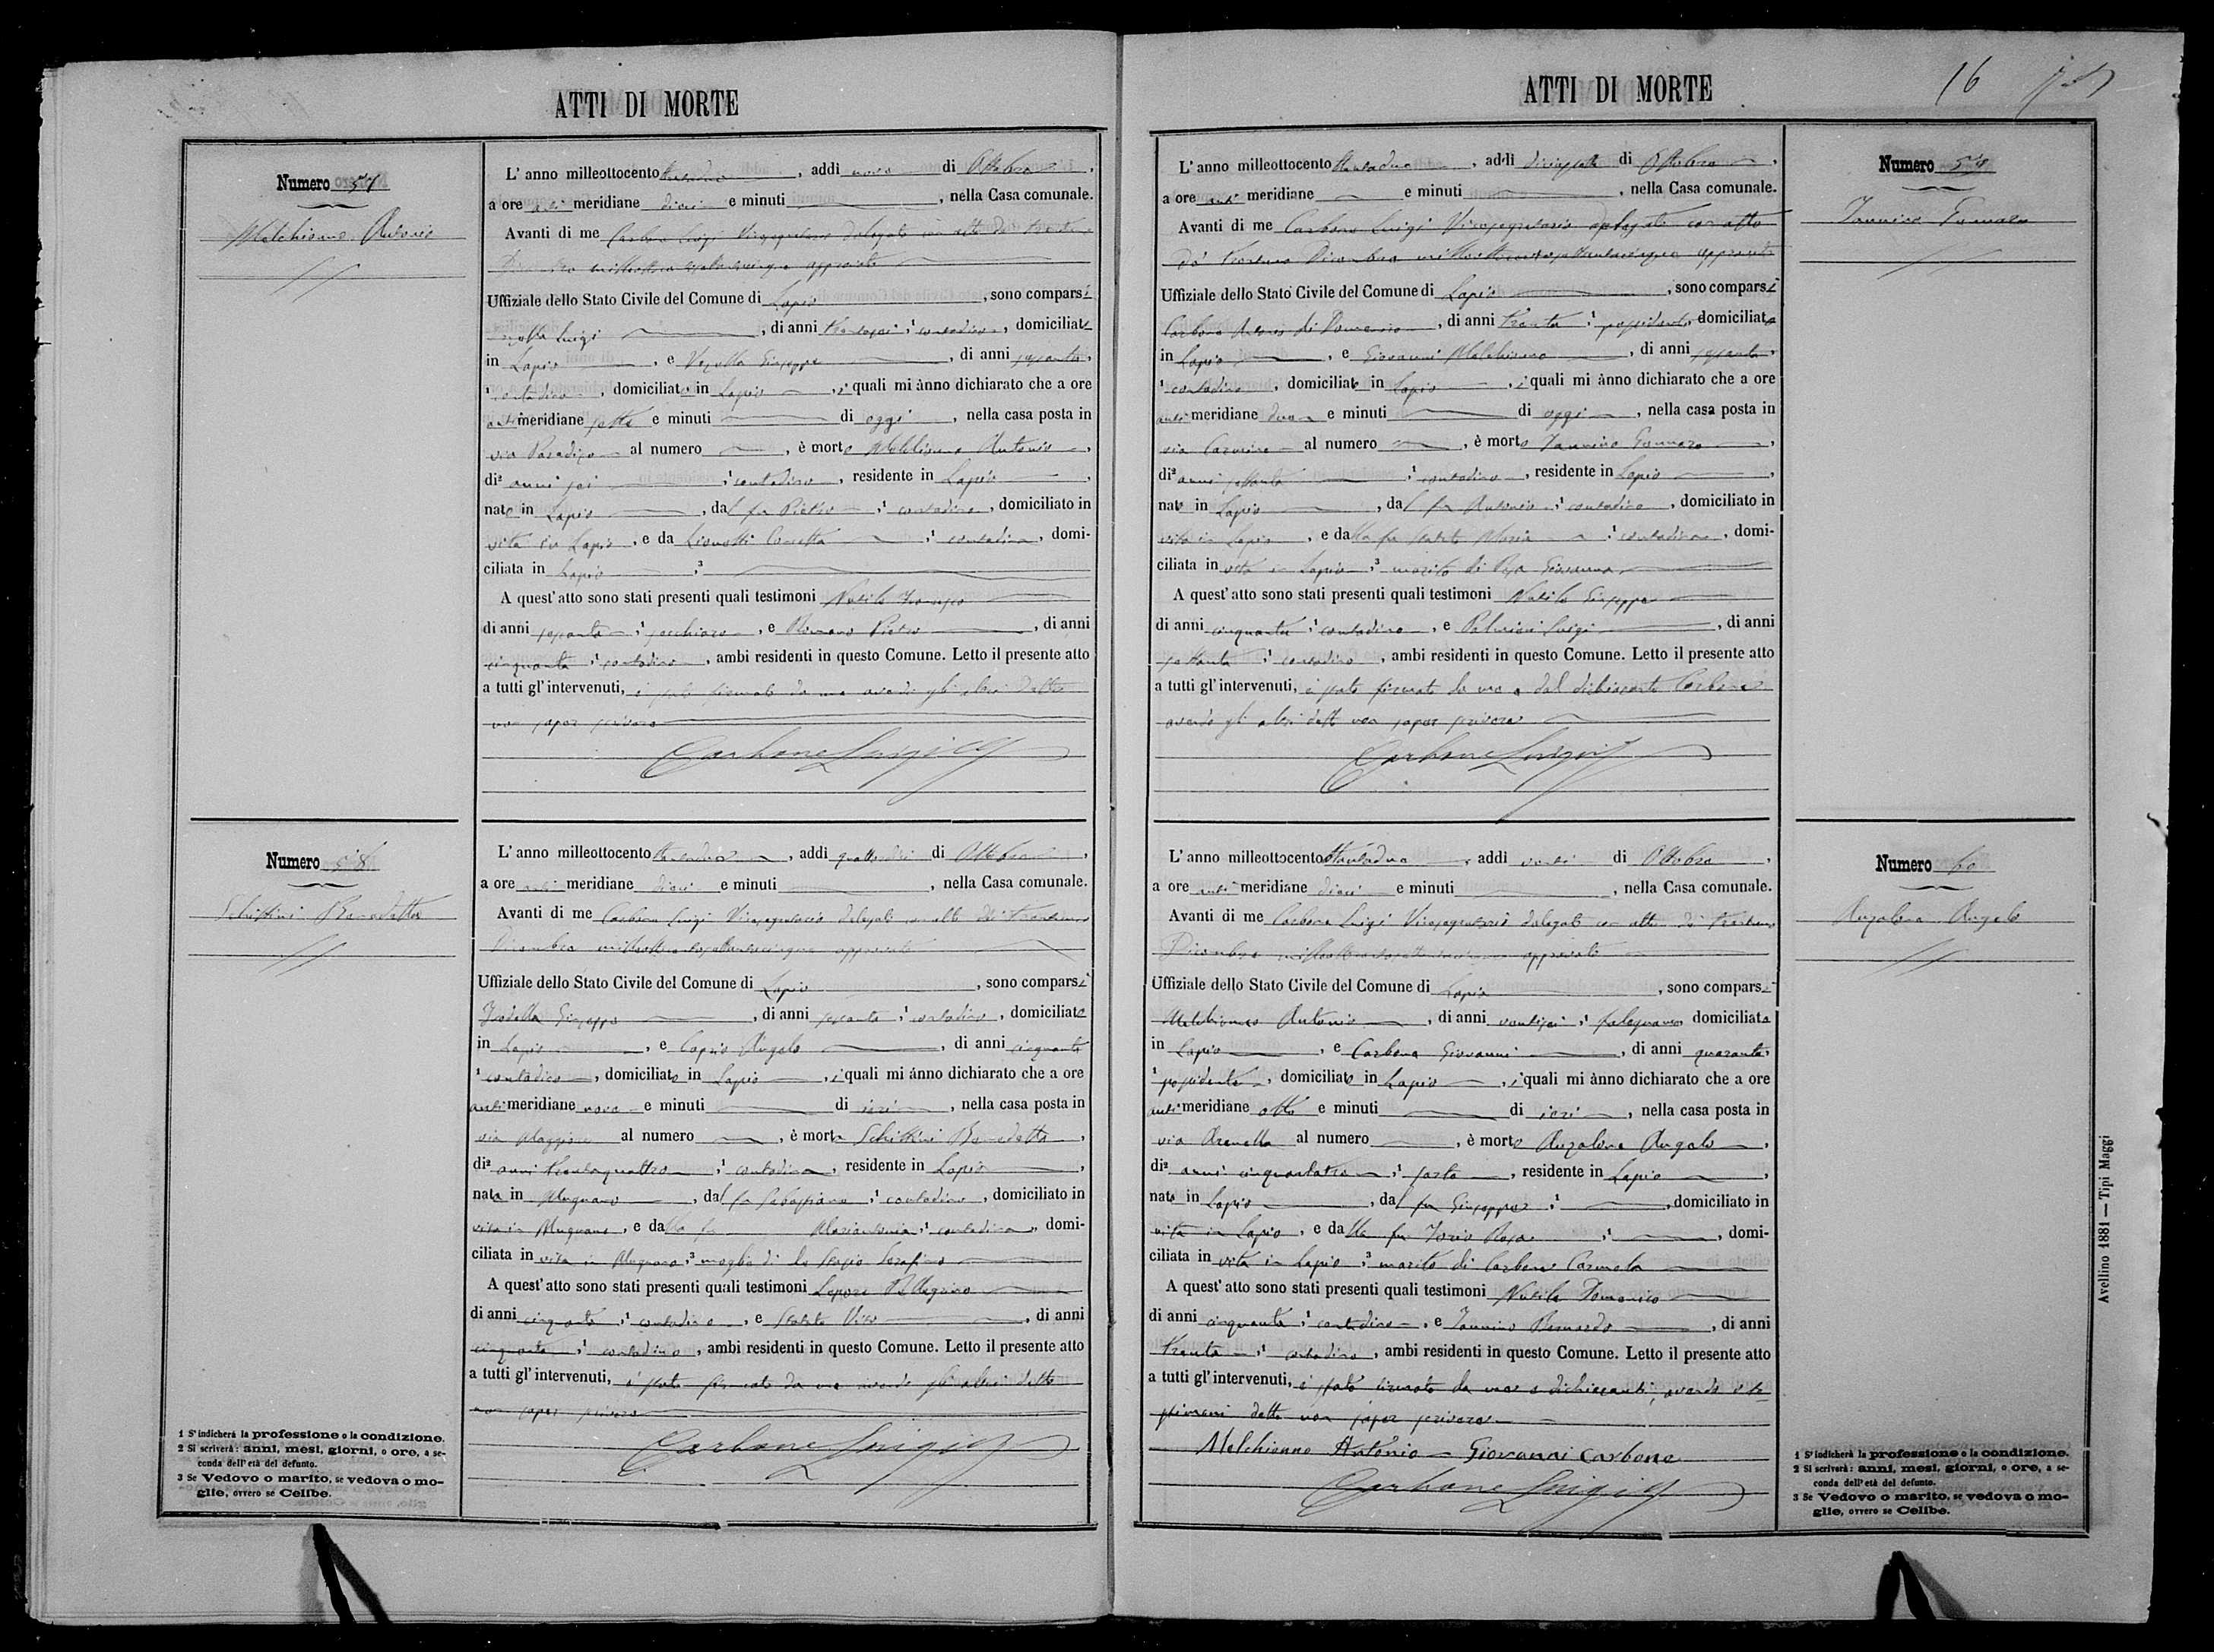 ATTI DI MORTE
Numero 57
Melchionno Antonio
L' anno milleottocento ottantadue, addì nove di Ottobre,
a ore anti meridiane dieci e minuti , nella Casa comunale.
Avanti di me Carbone Luigi Vicesegretario delegato con atto del trentuno
Dicembre milleottocentosettantacinque approvato
Uffiziale dello Stato Civile del Comune di Lapio, sono comparsi
Luigi , di anni trentasei, contadino, domiciliato
in Lapio, e Giuseppe , di anni sessanta,
contadino, domiciliato in Lapio, i quali mi ànno dichiarato che a ore
anti meridiane sette e minuti di oggi, nella casa posta in
via Paradiso al numero , è morto Melchionno Antonio,
di² anni sei , ¹ contadino, residente in Lapio,
nato in Lapio, dal fu Pietro, ¹ contadino, domiciliato in
vita in Lapio, e da Lionetti Concetta ¹ contadina, domi-
ciliata in Lapio ;³
A quest' atto sono stati presenti quali testimoni
di anni sessanta, ¹ , e Romano Pietro , di anni
cinquanta ¹ contadino, ambi residenti in questo Comune. Letto il presente atto
a tutti gl' intervenuti, è stato firmato da me avendo gli altri detto
non saper scrivere
Carbone Luigi
Numero 58
Schittini Benedetta
L' anno milleottocento ottantadue, addì quattordici di Ottobre,
a ore anti meridiane dieci e minuti , nella Casa comunale.
Avanti di me Carbone Luigi Vicesegretario delegato con atto del trentuno
Dicembre milleottocentosettantacinque approvato
Uffiziale dello Stato Civile del Comune di Lapio, sono comparsi
Giuseppe , di anni sessanta, ¹ contadino, domiciliato
in Lapio, e Caprio Angelo , di anni cinquanta
¹ contadino, domiciliato in Lapio, i quali mi ànno dichiarato che a ore
anti meridiane nove e minuti di ieri, nella casa posta in
via Maggiore al numero , è morta Schittini Benedetta,
di² anni trentaquattro, ¹ contadina, residente in Lapio,
nata in Mugnano, dal fu Sebastiano, ¹ contadino, domiciliato in
vita in Mugnano, e dalla fu Mariantonia, ¹ contadina, domi-
ciliata in vita in Mugnano ;³ moglie di Lo Stazio Serafino
A quest' atto sono stati presenti quali testimoni Lepore Pellegrino
di anni cinquanta, ¹ contadino, e Vito , di anni
cinquanta, ¹ contadino, ambi residenti in questo Comune. Letto il presente atto
a tutti gl' intervenuti, è stato firmato da me avendo gli altri detto
non saper scrivere
Carbone Luigi
1 S' indicherà la professione o la condizione.
2 Si scriverà: anni, mesi, giorni, o ore, a se-
conda dell' età del defunto.
3 Se Vedovo o marito, se vedova o mo-
glie, ovvero se Celibe.
ATTI DI MORTE
16
Numero 59
Iannino Gennaro
L' anno milleottocento ottantadue, addì diciassette di Ottobre,
a ore anti meridiane e minuti , nella Casa comunale.
Avanti di me Carbone Luigi Vicesegretario delegato con atto
di trentuno Dicembre milleottocentosettantacinque approvato
Uffiziale dello Stato Civile del Comune di Lapio, sono comparsi
Carbone Antonio di Domenico, di anni trenta ¹ possidente, domiciliato
in Lapio, e Giovanni Melchionno , di anni sessanta,
¹ contadino, domiciliato in Lapio, i quali mi ànno dichiarato che a ore
anti meridiane due e minuti di oggi, nella casa posta in
via Carmine al numero , è morto Iannino Gennaro,
di² anni settanta ¹ contadino, residente in Lapio,
nato in Lapio, dal fu Antonio, ¹ contadino, domiciliato in
vita in Lapio, e dalla fu Maria ¹ contadina, domi-
ciliata in vita in Lapio ;³ marito di Giovanna
A quest' atto sono stati presenti quali testimoni Giuseppe
di anni cinquanta ¹ contadino, e Palmieri Luigi , di anni
settanta ¹ contadino, ambi residenti in questo Comune. Letto il presente atto
a tutti gl' intervenuti, è stato firmato da me e dal dichiarante Carbone
avendo gli altri detto non saper scrivere
Carbone Luigi
Numero 60
Anzalone Angelo
L' anno milleottocento ottantadue, addì venti di Ottobre,
a ore anti meridiane dieci e minuti , nella Casa comunale.
Avanti di me Carbone Luigi Vicesegretario delegato con atto di trentuno
Dicembre milleottocentosettantacinque approvato
Uffiziale dello Stato Civile del Comune di Lapio, sono comparsi
Melchionno Antonio , di anni ventisei, ¹ falegname, domiciliato
in Lapio, e Carbone Giovanni , di anni quaranta,
¹ possidente, domiciliato in Lapio, i quali mi ànno dichiarato che a ore
anti meridiane otto e minuti di ieri, nella casa posta in
via Arenella al numero , è morto Anzalone Angelo,
di² anni cinquantatre, ¹ sarto, residente in Lapio,
nato in Lapio, dal fu Giuseppe, ¹ , domiciliato in
vita in Lapio, e dalla fu Iorio Rosa ¹ , domi-
ciliata in vita in Lapio ;³ marito di Carbone Carmela
A quest' atto sono stati presenti quali testimoni Domenico
di anni cinquanta, ¹ contadino, e Iannino Bernardo , di anni
trenta, ¹ contadino, ambi residenti in questo Comune. Letto il presente atto
a tutti gl' intervenuti, è stato firmato da me e dichiaranti, avendo i te-
stimoni detto non saper scrivere
Melchionno Antonio - Giovanni Carbone
Carbone Luigi
1 S' indicherà la professione o la condizione.
2 Si scriverà: anni, mesi, giorni, o ore, a se-
conda dell' età del defunto.
3 Se Vedovo o marito, se vedova o mo-
glie, ovvero se Celibe.
Avellino 1881 — Tipi Maggi